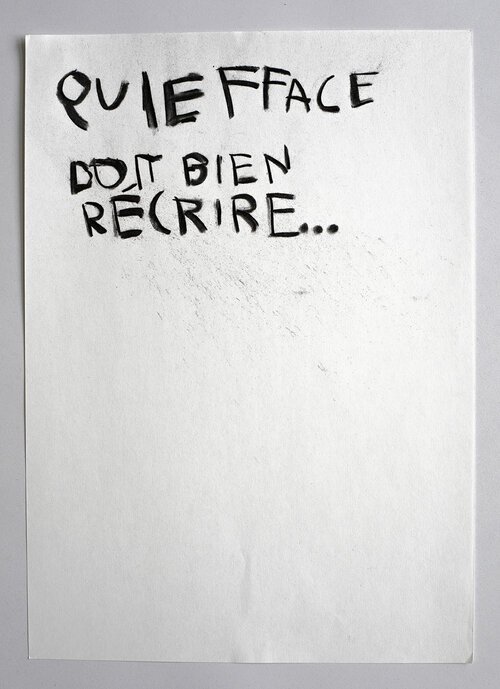 QUI EFFACE
DOIT BIEN
RÉCRIRE...